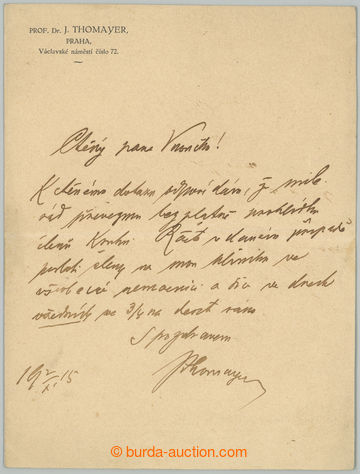 PROF. Dr. J. THOMAYER,
PRAHA,
Václavské náměstí číslo 72.
Ctěný pane
K ctěnému dotazu odpovídám, že milerád
převezmu bezplatně prohlídku
členů Kruhu. Račte v daném případě
poslati členy na mou kliniku ve
všeobecné nemocnici a sice ve dnech
všedních ve 3/4 na deset ráno
S pozdravem
JThomayer
19 2/XI 15
© burda-auction.com